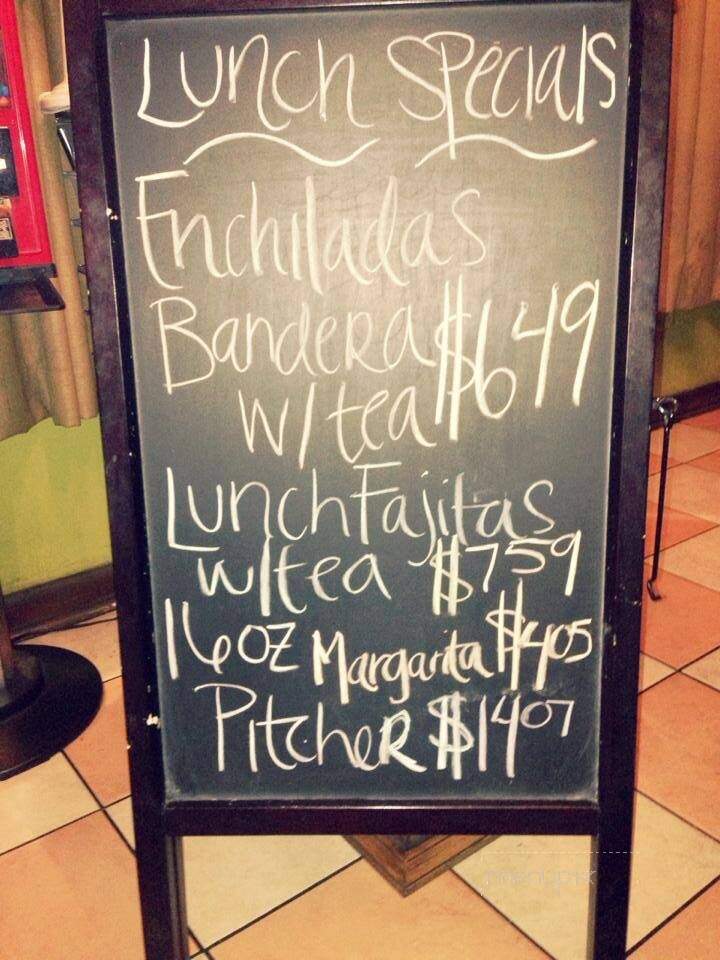 Lunch Specials
Enchiladas
Bandera $649
w/tea
Lunch Fajitas
w/tea $759
16oz Margarita $405
Pitcher $1407